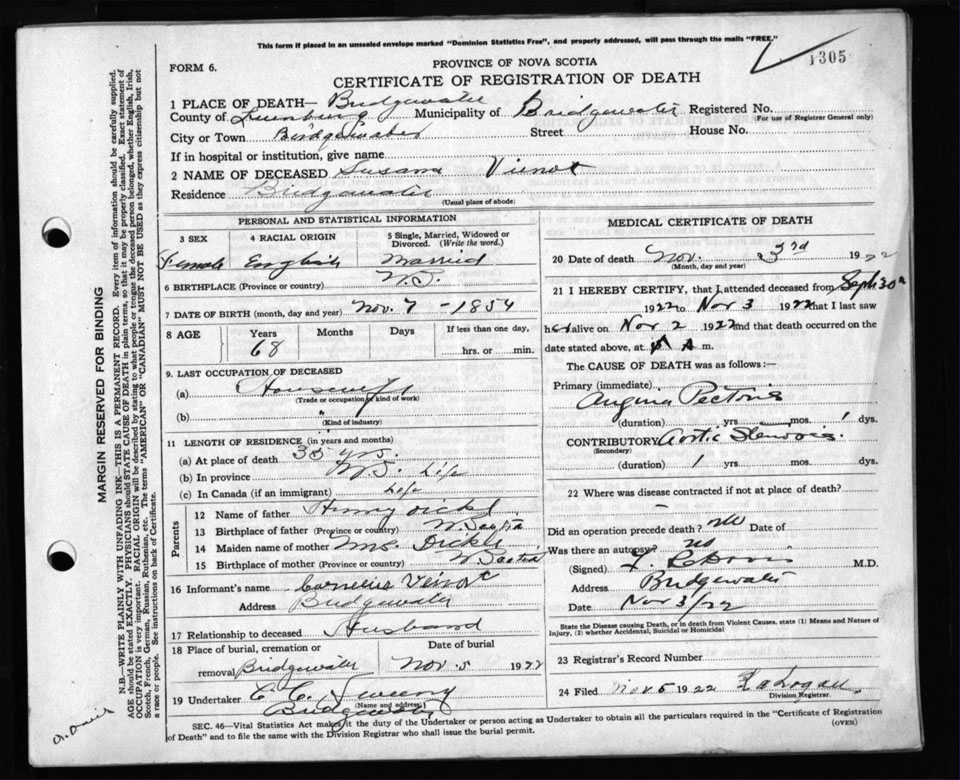 This form if placed in an unsealed envelope marked "Dominion Statistics Free", and properly addressed, will pass through the mails "FREE."
1305
FORM 6.
PROVINCE OF NOVA SCOTIA
CERTIFICATE OF REGISTRATION OF DEATH
1 PLACE OF DEATH— Bridgewater
County of Lunenburg Municipality of Bridgewater Registered No.
(For use of Registrar General only)
City or Town Bridgewater Street House No.
If in hospital or institution, give name
2 NAME OF DECEASED Susanna Vienot
Residence Bridgewater
(Usual place of abode)
PERSONAL AND STATISTICAL INFORMATION
3 SEX 4 RACIAL ORIGIN 5 Single, Married, Widowed or Divorced. (Write the word.)
Female English Married
6 BIRTHPLACE (Province or country) N.S.
7 DATE OF BIRTH (month, day and year) Nov. 7 - 1854
8 AGE Years Months Days If less than one day,
68 hrs. or min.
9. LAST OCCUPATION OF DECEASED
(a) Housewife
(Trade or occupation or kind of work)
(b) "
(Kind of industry)
11 LENGTH OF RESIDENCE (in years and months)
(a) At place of death 35 yrs.
(b) In province N.S. Life
(c) In Canada (if an immigrant) Life
Parents
12 Name of father Henry
13 Birthplace of father (Province or country) N. Scotia
14 Maiden name of mother Mrs.
15 Birthplace of mother (Province or country) N Scotia
16 Informant's name Cornelius Veinot
Address Bridgewater
17 Relationship to deceased Husband
18 Place of burial, cremation or removal Bridgewater Date of burial Nov. 5 1922
19 Undertaker C. C. Sweeny
(Name and address)
Bridgewater
MEDICAL CERTIFICATE OF DEATH
20 Date of death Nov. 3rd 1922
(Month, day and year)
21 I HEREBY CERTIFY, that I attended deceased from Sept 30th
1922 to Nov 3 1922 that I last saw
her alive on Nov 2 1922 and that death occurred on the
date stated above, at A m.
The CAUSE OF DEATH was as follows:—
Primary (immediate)
Angina Pectoris
(duration) yrs mos. 1 dys.
CONTRIBUTORY Aortic Stenosis.
(Secondary)
(duration) 1 yrs mos. dys.
22 Where was disease contracted if not at place of death?
Did an operation precede death? no Date of
Was there an autopsy? no
(Signed) M.D.
Address Bridgewater
Date Nov 3/22
State the Disease causing Death, or in death from Violent Causes, state (1) Means and Nature of Injury, (2) whether Accidental, Suicidal or Homicidal
23 Registrar's Record Number
24 Filed Nov. 5 1922 Logan
Division Registrar.
SEC. 46—Vital Statistics Act makes it the duty of the Undertaker or person acting as Undertaker to obtain all the particulars required in the "Certificate of Registration of Death" and to file the same with the Division Registrar who shall issue the burial permit.
(OVER)
MARGIN RESERVED FOR BINDING
N.B.—WRITE PLAINLY WITH UNFADING INK—THIS IS A PERMANENT RECORD. Every item of information should be carefully supplied.
AGE should be stated EXACTLY. PHYSICIANS should STATE CAUSE OF DEATH in plain terms, so that it may be properly classified. Exact statement of
OCCUPATION is very important. RACIAL ORIGIN will be described by stating to what people or tongue the deceased person belonged, whether English, Irish,
Scotch, French, German, Russian, Ruthenian, etc. The terms "AMERICAN" or "CANADIAN" MUST NOT BE USED as they express citizenship but not
a race or people. See instructions on back of Certificate.